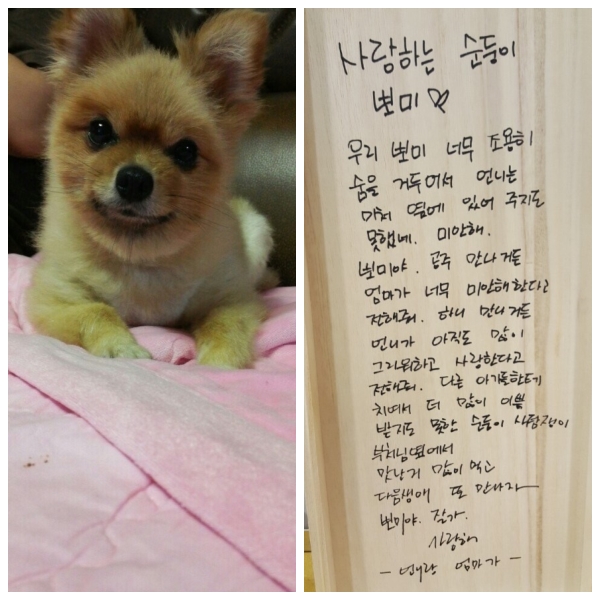 사랑하는 순둥이
뽀미♡
우리 뽀미 너무 조용히
숨을 거두어서 언니는
미처 옆에 있어 주지도
못했네. 미안해.
뽀미야. 공주 만나거든
엄마가 너무 미안해한다고
전해줘. 하니 만나거든
언니가 아직도 많이
그리워하고 사랑한다고
전해줘. 다른 아가들한테
치여서 더 많이 이쁨
받지도 못한 순둥이 사랑쟁이
부처님옆에서
맛난거 많이 먹고
다음생에 또 만나자
뽀미야. 잘가.
사랑해
- 언니랑 엄마가 -